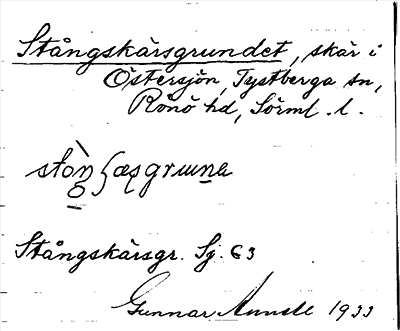 Stångskärsgrundet, skär i
Östersjön, Tystberga sn,
Rönö hd, Sörml. l.
Stångskärsgr. Sj. 63
Gunnar 1933